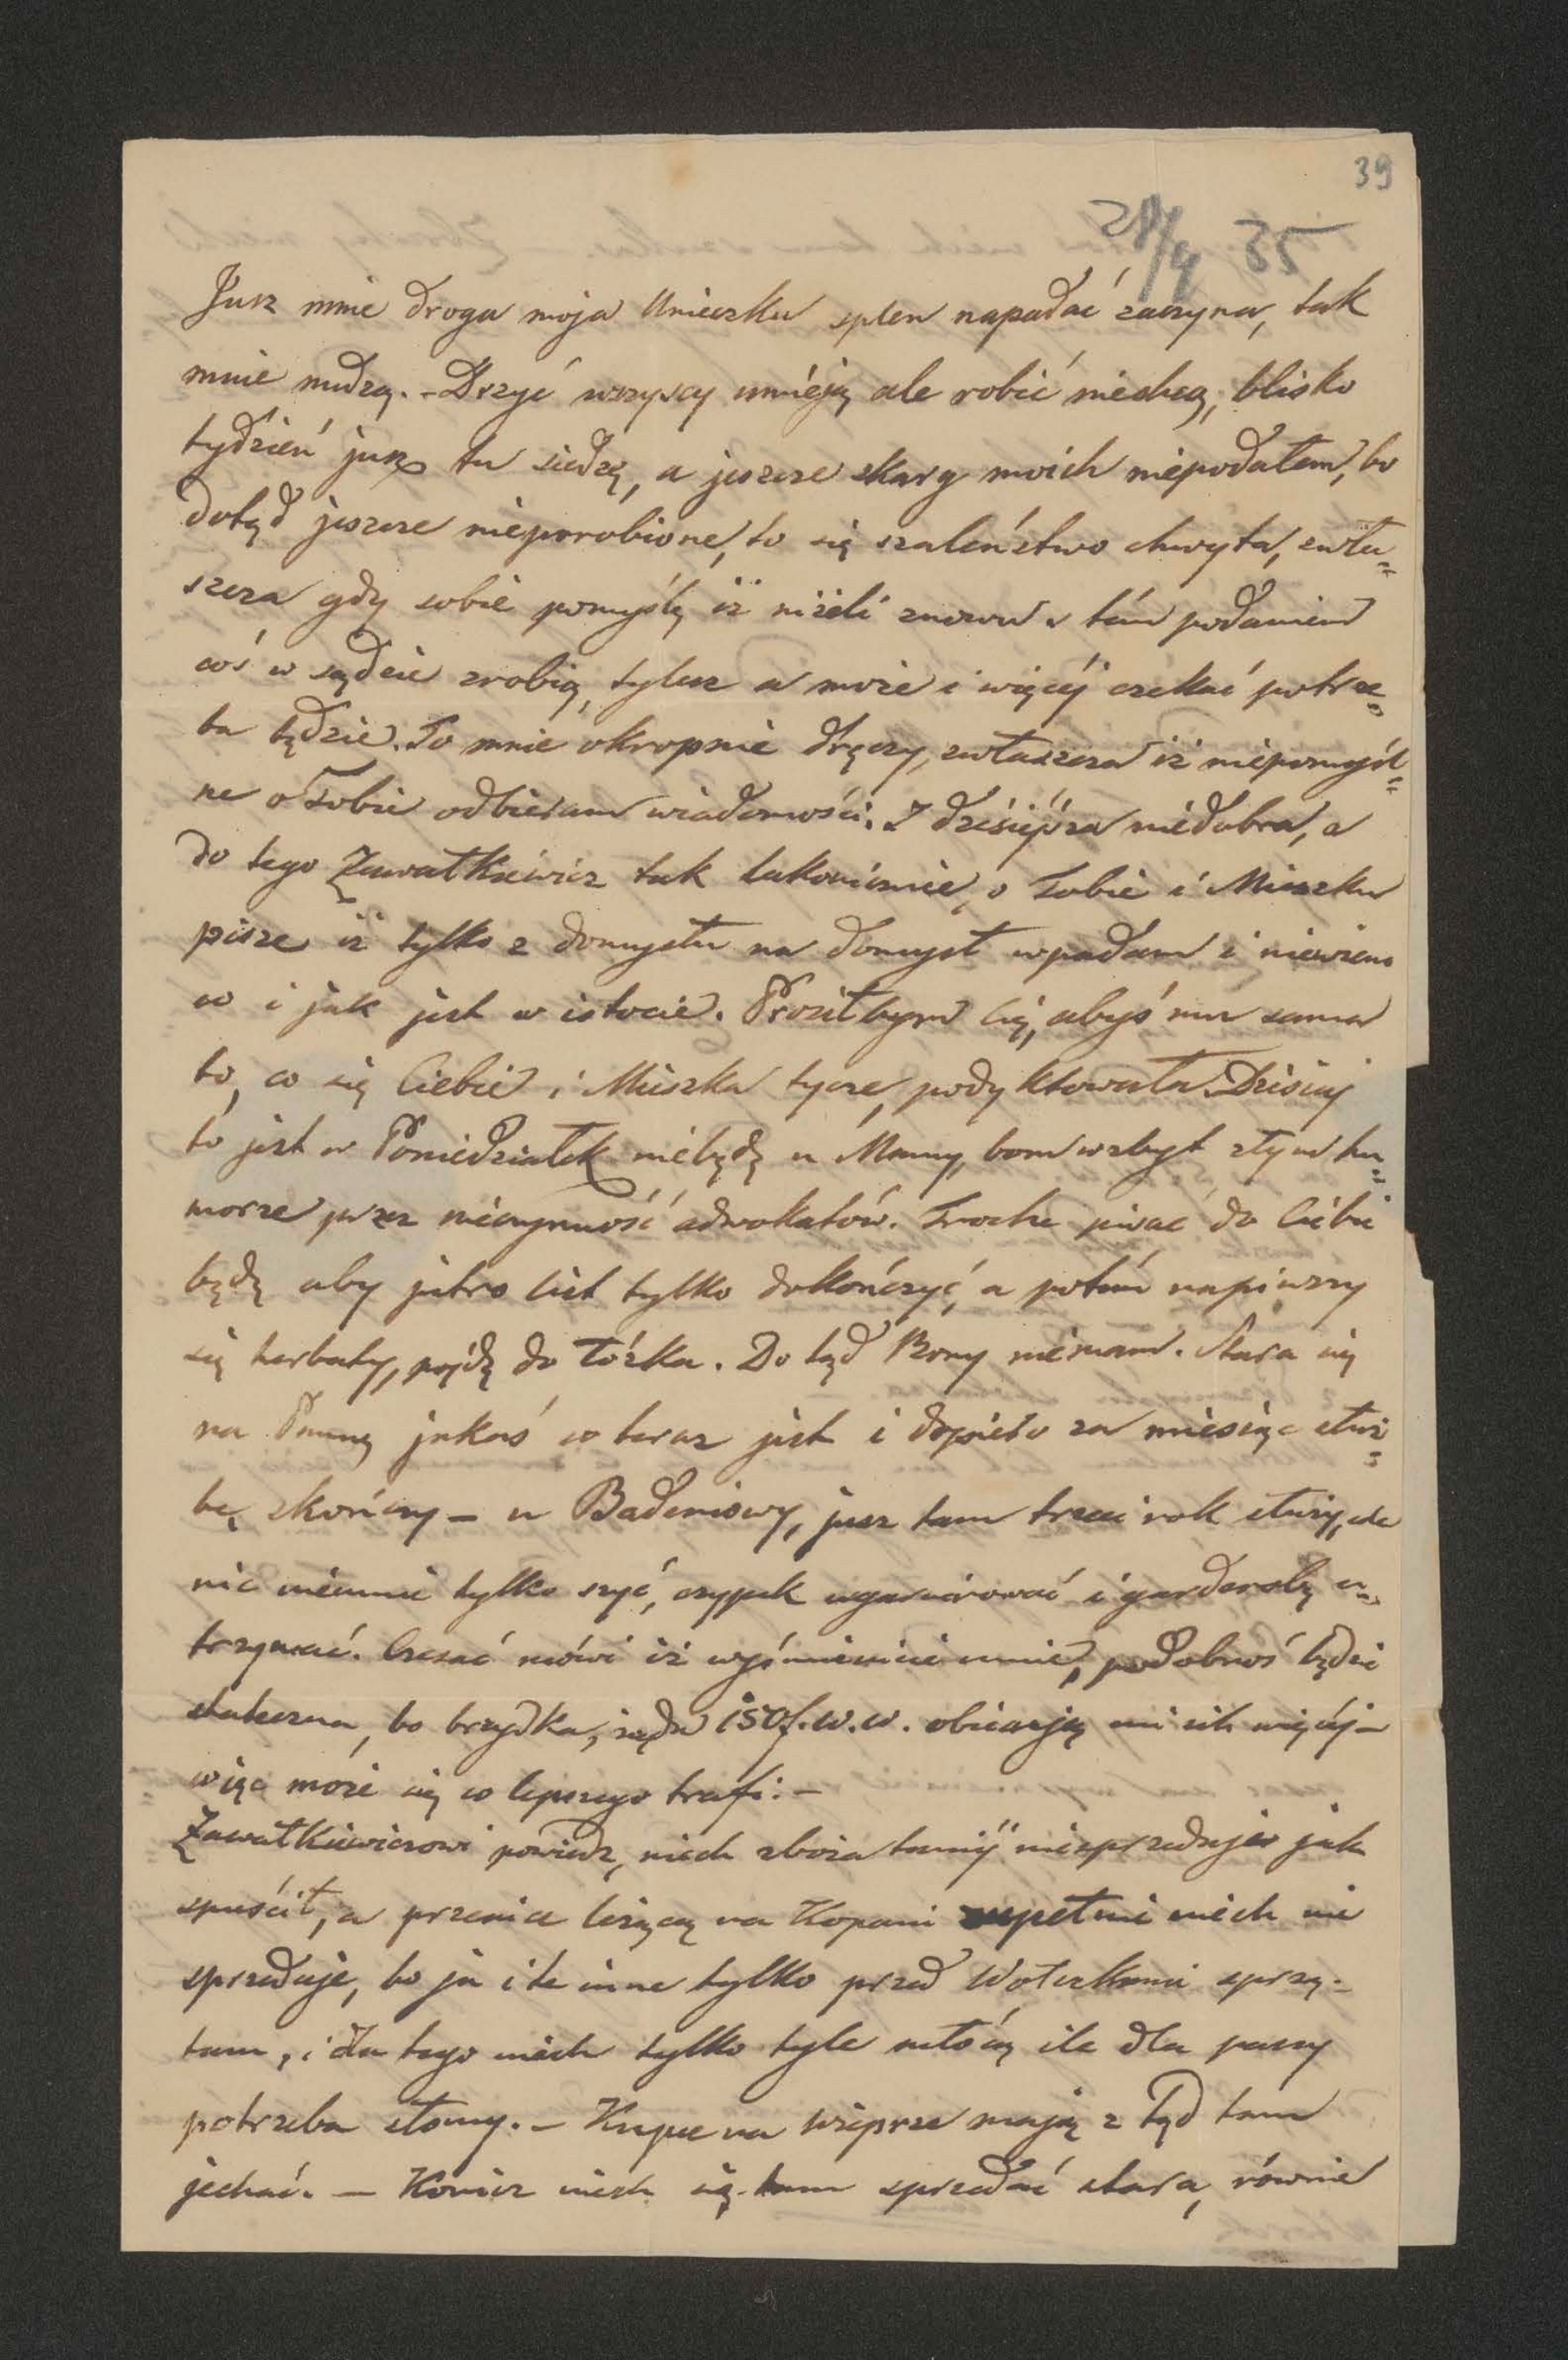 39
28/9 35
Jusz mnie droga moja Unieczku splen napadać zaczyna, tak
mnie nudzą. - Drzyć wszyscy umieją ale robić niechcą, blisko
tydzień jusz tu siedzę, a jeszcze skarg moich niepodałem, bo
dotąd jeszcze nieporobione, to się szaleństwo chwyta, zwła=
szcza gdy sobie pomyślę iż niżeli znowu s tém podaniem
coś w sądzie zrobią, tylesz a może i więcéj czekać potrze=
ba będzie. To mnie okropnie dręczy, zwłaszcza iż niepomyśl=
ne o Tobie odbieram wiadomości. I dzisiéjsza niédobra, a
do tego Zawałkiéwicz tak lakonicznie, o Tobie i Mieszku
pisze iż tylko z domysłu na domysł wpadam i niewiem
co i jak jest w istocie. Prosiłbym Cię, abyś mu sama
to, co się Ciebie i Mieszka tycze, podyktowała. Dzisiaj
to jest w Poniedziałek niébędę u Mamy, bom wzbyt złym hu=
morze przez niéczynność adwokatów. Trochę pisać do Ciébie
będę aby jutro list tylko dokończyć, a potém napiwszy
się herbaty, pójdę do łóżka. Do tąd Bony niémam. Stara się
na Pannę jakaś co teraz jest i dopiéro za miesiąc służ=
bę skończy - u Badeniowy, jusz tam trzeci rok służy, ale
nic niéumié tylko szyć, czypek ugarnirować i garderobę u=
trzymać. Czesać mówi iż wyśmienicie umié, podobnoś będzie
stateczna, bo brzydka, żąda 150 f. w. w. obiecują mi ich więcéj -
więc może się co lepszego trafi: -
Zawałkiéwiczowi powiédz, niech zboża taniéj niesprzedaje jak
spuścił, a przenice leżącą na Kopani zupełnie niech nie
sprzedaje, bo ja i te inne tylko przed Wołczkami sprzą-
tam, i dla tego niech tylko tyle młócą ile dla paszy
potrzeba słomy. - Kupce na wieprze mają z tąd tam
jechać. - Konicz niech się tam sprzedać stara, równie